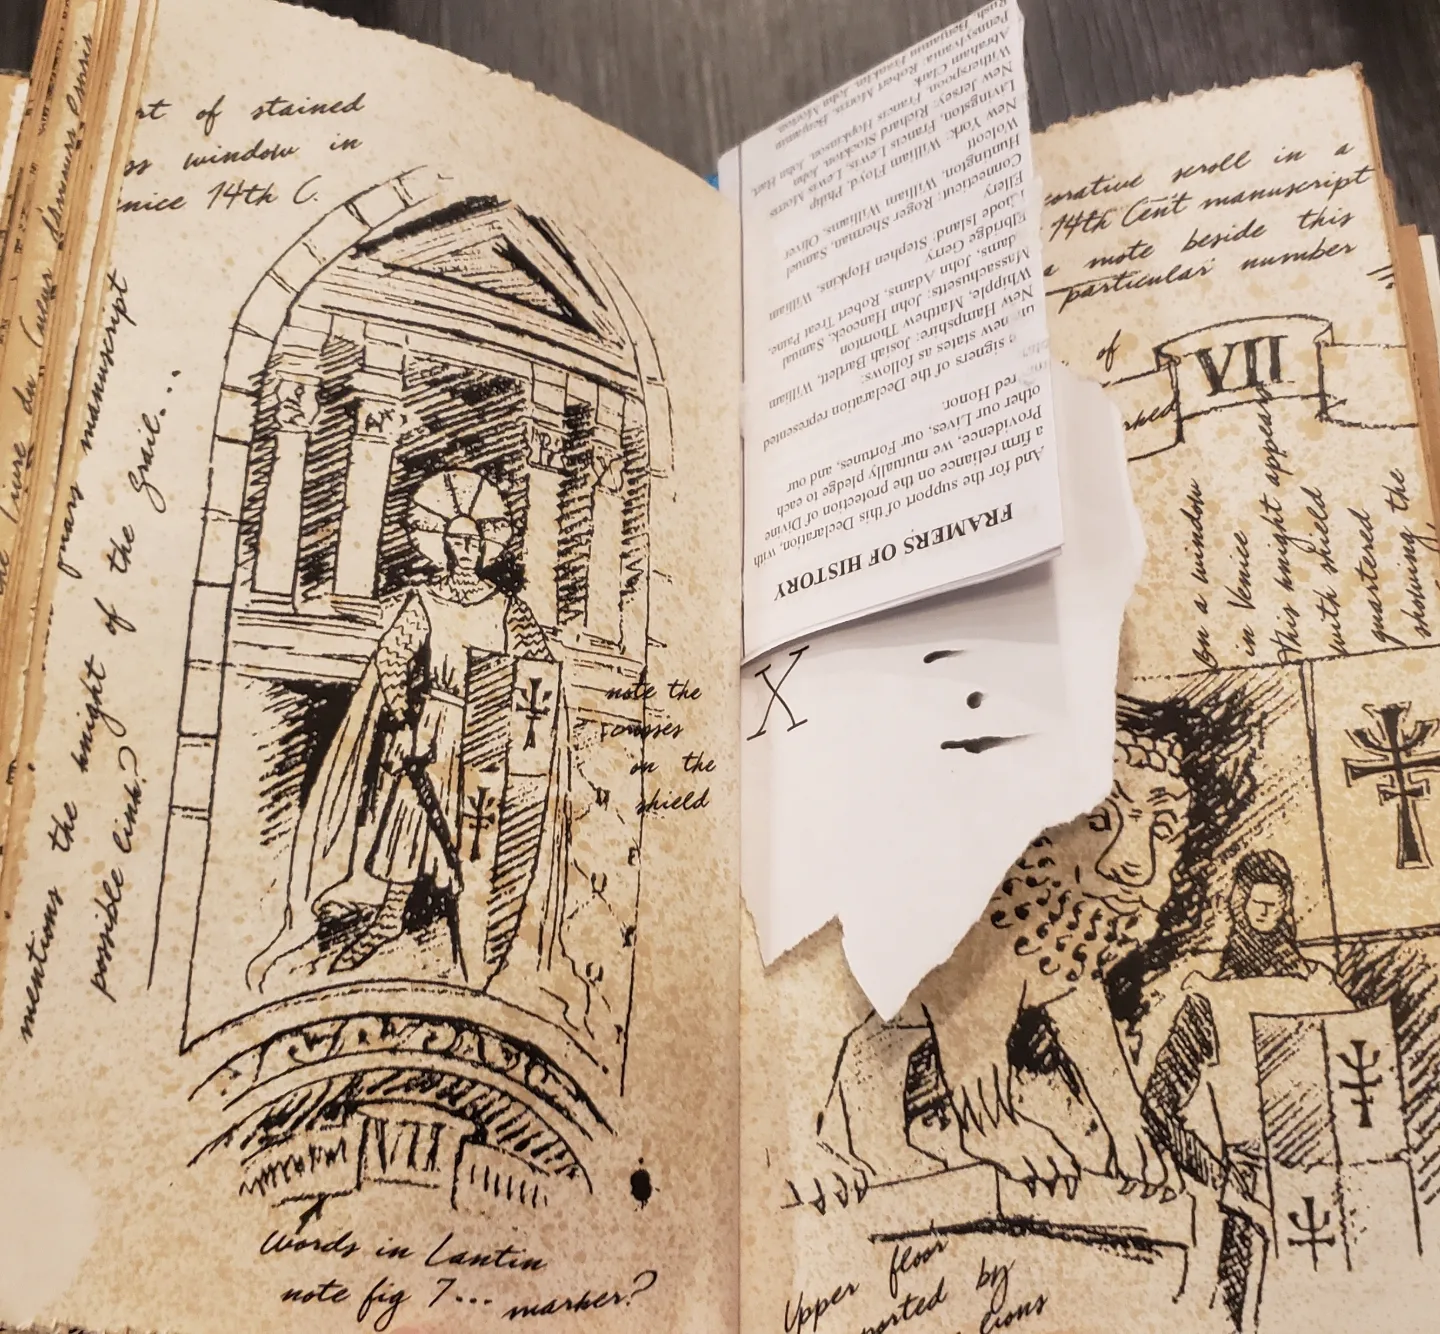 of stained
window in
14th C.
manuscript
mentions the knight of the Grail...
possible link?
note the
on the
shield
VII
Words in Lantin
note fig 7... marker?
FRAMERS OF HISTORY
And for the support of this Declaration, with
a firm reliance on the protection of Divine
Providence, we mutually pledge to each
other our Lives, our Fortunes, and our
red Honor.
signers of the Declaration represented
new states as follows:
New Hampshire: Josiah Bartlett, William
Whipple, Matthew Thornton
Massachusetts: John Hancock, Samual
dams, John Adams, Robert Treat Paine,
Elbridge Gerry
hode Island: Stephen Hopkins, William
Ellery
Connecticut: Roger Sherman, Samuel
Huntington, William Williams, Oliver
Wolcott
New York: William Floyd, Philip
Livingston, Francis Lewis, Lewis Morris
New Jersey: Richard Stockton, John
Witherspoon, Francis Hopkinson, John Hart,
Abraham Clark
Pennsylvania: Robert Morris, Benjamin
Rush, Benjamin Franklin, John Morton,
X
scroll in a
14th Cent manuscript
a note beside this
particular number
of
VII
on a window
in Venice
This knight appears
with shield
quartered
showing the
Upper floor
by